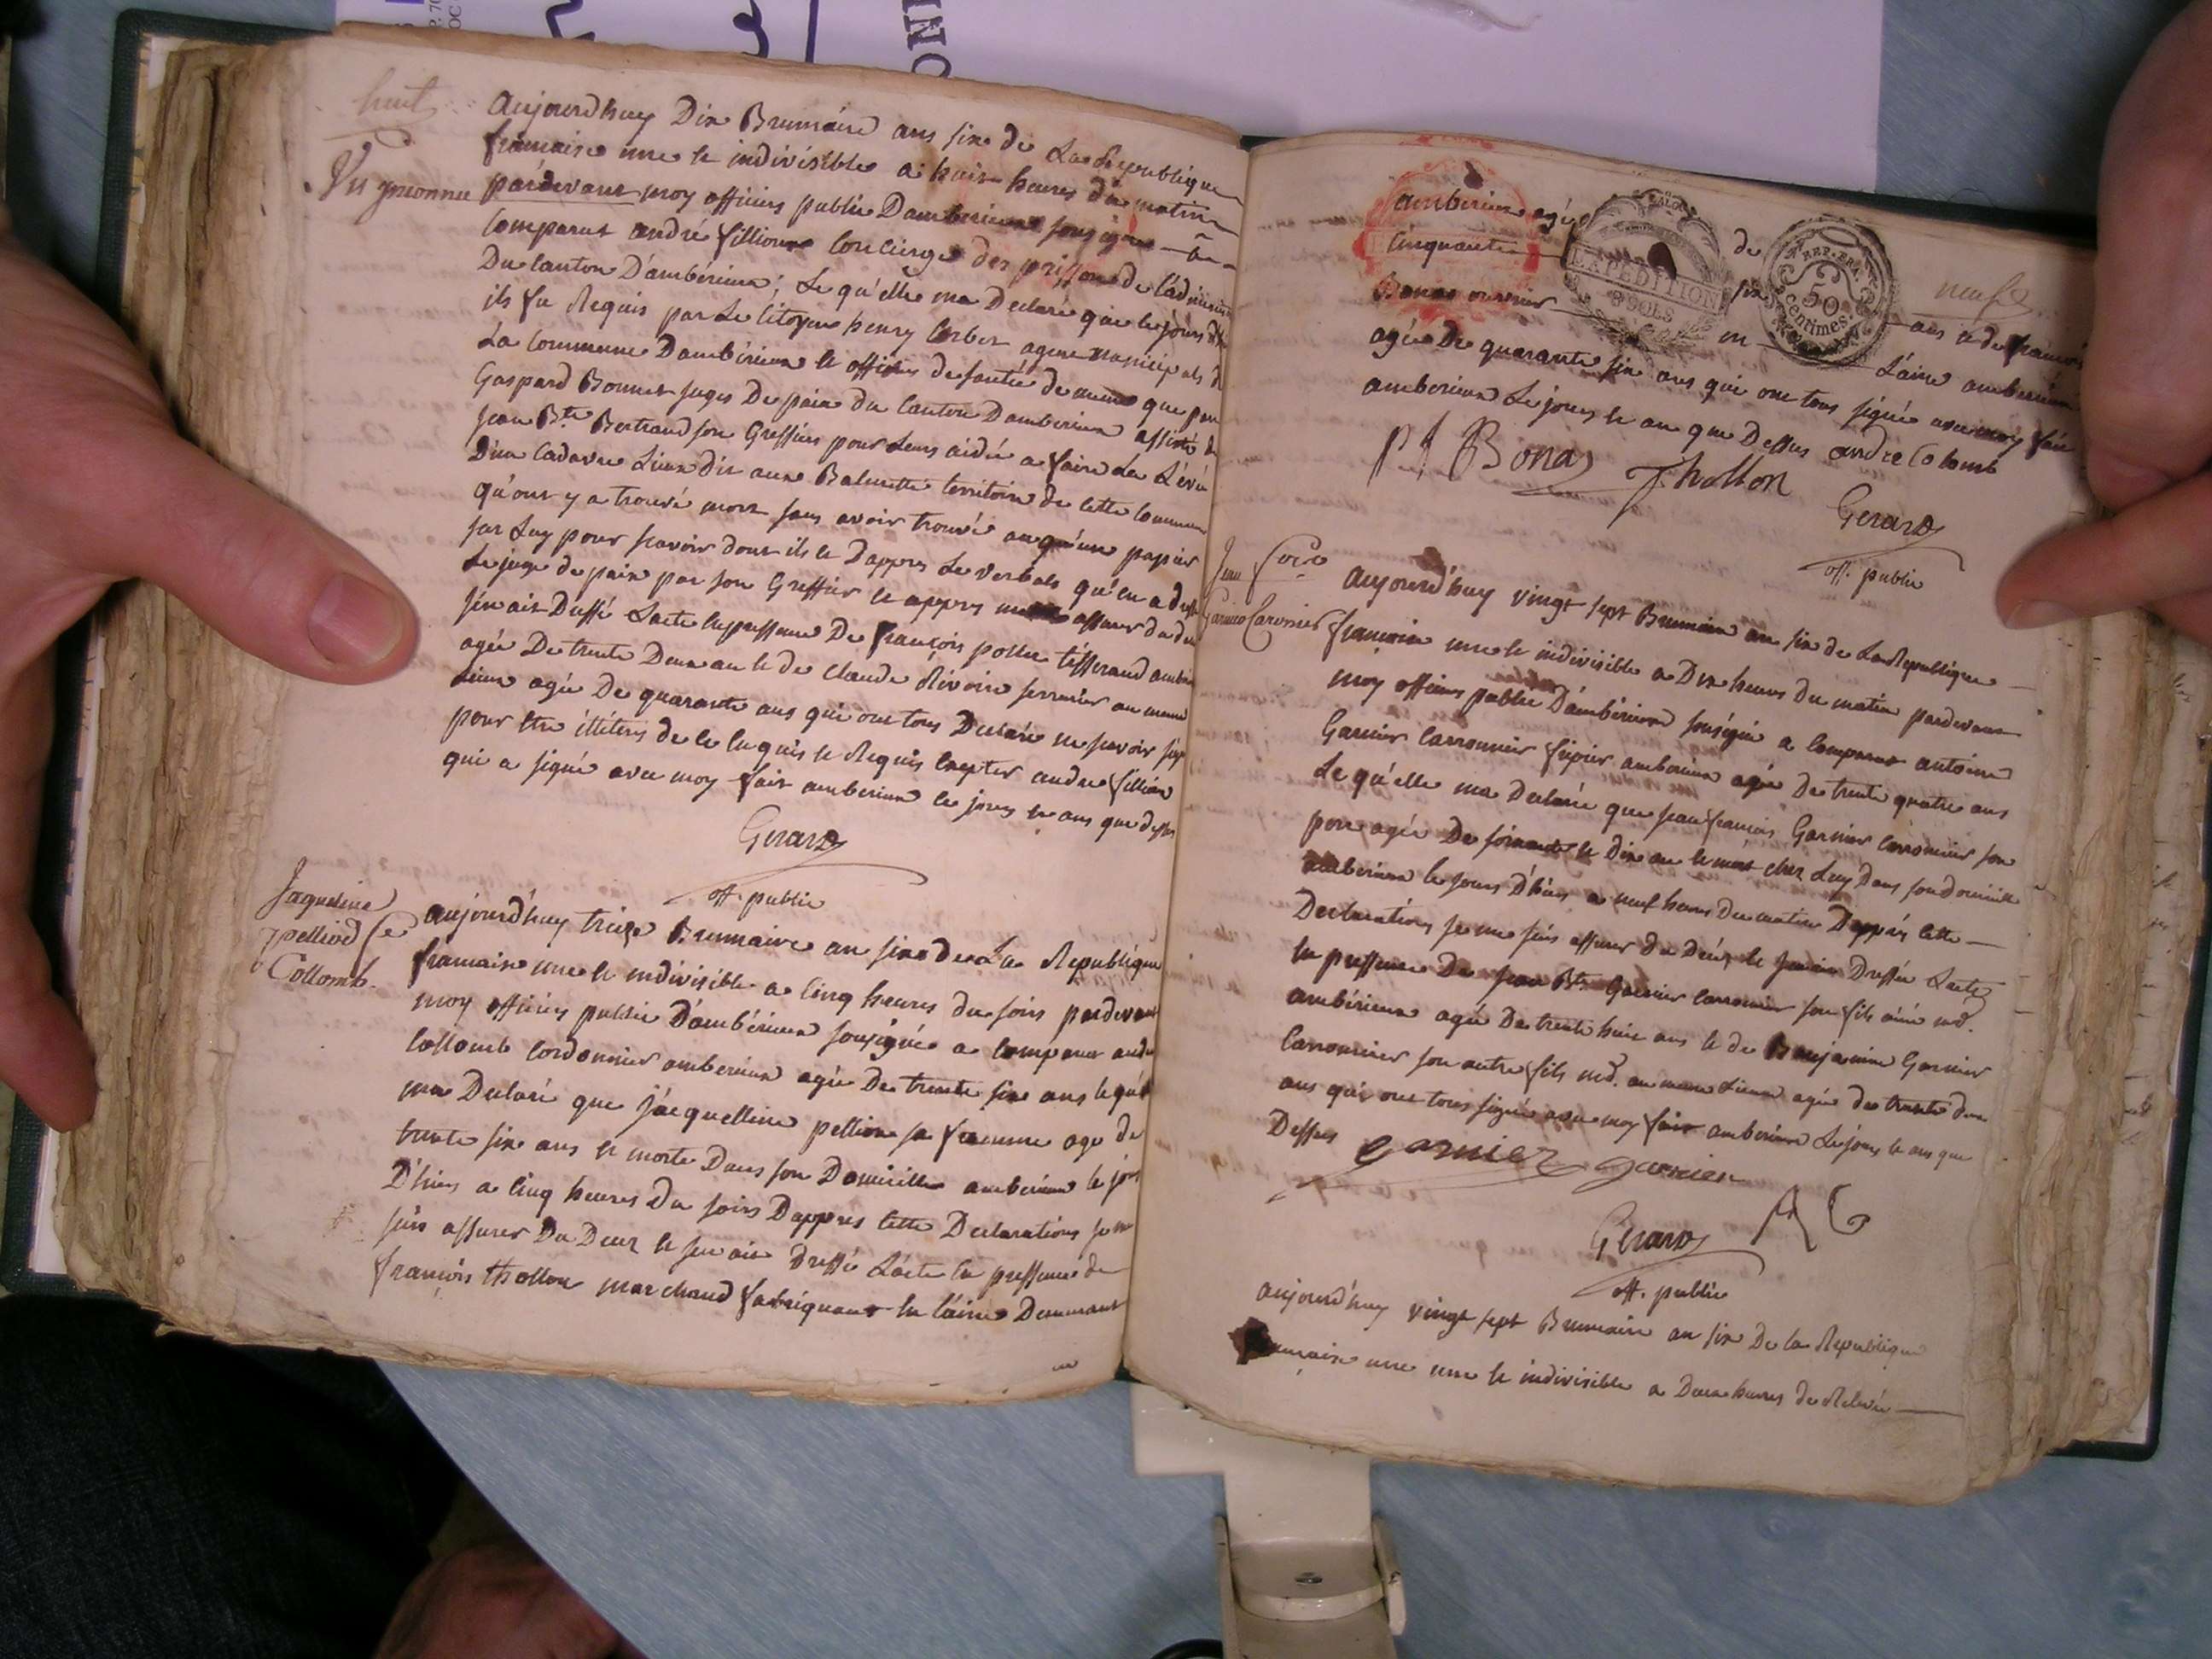 huit
Un ynconnu
aujourdhuy Dix Brumaire ans six de La Republique
francaise une et indivisible a huit heures du matin
pardevant moy officier public Damberieux sousigné a
comparut andré fillion concierge des prisons de l'admin
Du canton D'ambérieux ; Le qu'elle ma Declaré que le jours d'h
ils fu Requis par Le Citoyen henry Corbet agent municipals d
La Commune Dambérieux et officier de santée de meme que par
Gaspard Bonnet juges De paix du Canton Damberieux assisté d
jean Bte Bertrand son Greffier pour Leurs aidé a faire La Lévé
D'un Cadavre Lieux dit aux Balmette territoire de cette Commun
qu'ont y a trouvé mort sans avoir trouvé auqu'une papier
sur Luy pour scavoir dont ils et Dappres Le verbals qu'en a dress
Le juge de paix par son Greffier et appres assurer du de
j'en ait Dressé Lacte En pressence De françois tisserand amber
agée De trente Deux an et de claude Rivoire serrurier au meme
Lieux agée De quarante ans qui ont tous Declaré ne scavoir sig
pour etre illiteres de ce enquis et Requis Excepter andre fillion
qui a signé avec moy fait amberieux les jours et ans que dessus
Gerard
off. public
Jaqueline
pelliod fe
Collomb.
aujourd'huy treize Brumaire an six de La Republique
francaise une et indivisible a Cinq heures du soirs pardevant
moy officier public D'ambérieux sousignée a comparut andre
Collomb Cordonnier amberieux agée De trente six ans le quel
ma Declaré que j'acquelline pellion sa femme age de
trente six ans et morte Dans son Domicille amberieux le jour
D'hiers a Cinq heures Du soirs Dappres Cette Declarations je me
suis assurer Du Deces et j'en ait Dressé L'acte En pressence de
françois thollon marchand fabriquant En laine Demeurant
amberieux agée de
Cinquante six ans et de françois
Bonas ouvrier en Laine amberieux
EXPEDITION
8 SOLS
REP. FRA.
50
Centimes.
neuf
agée De quarante six ans qui ont tous signée avec moy fait
amberieux Le jours et an que Dessus andre Colomb
Bonas Thollon
Gerard
off. public
Jean frois
Garnier Caronnier
aujourd'huy vingt sept Brumaire an six de La Republique
francaise une et indivisible a Dix heures Du matin pardevant
moy officier public D'ambérieux sousigné a Comparut antoine
Garnier Carronnier fripier amberieux agée De trente quatre ans
Le qu'elle ma Declaré que jean françois Garnier Carronnier son
pere agée De soixante et Dix an et mort chez Luy Dans son domicille
amberieux le jours D'hiers a neuf heures Du matin Dappres Cette
Declarations je me suis assurer Du Déces et j'en ait Dressée Lacte
En pressence De jean Bte Garnier Carronnier son fils ainé md.
ambérieux agée De trente huit ans et de Benjamin Garnier
Carronnier son autre fils md. au meme Lieux agée de trente deux
ans qui ont tous signée avec moy fait amberieux Le jours et ans que
Dessus garnier garnier
Gerard A G
off. public
aujourd'huy vingt sept Brumaire an six De la Republique
francaise une une et indivisible a Deux heures de Relevée